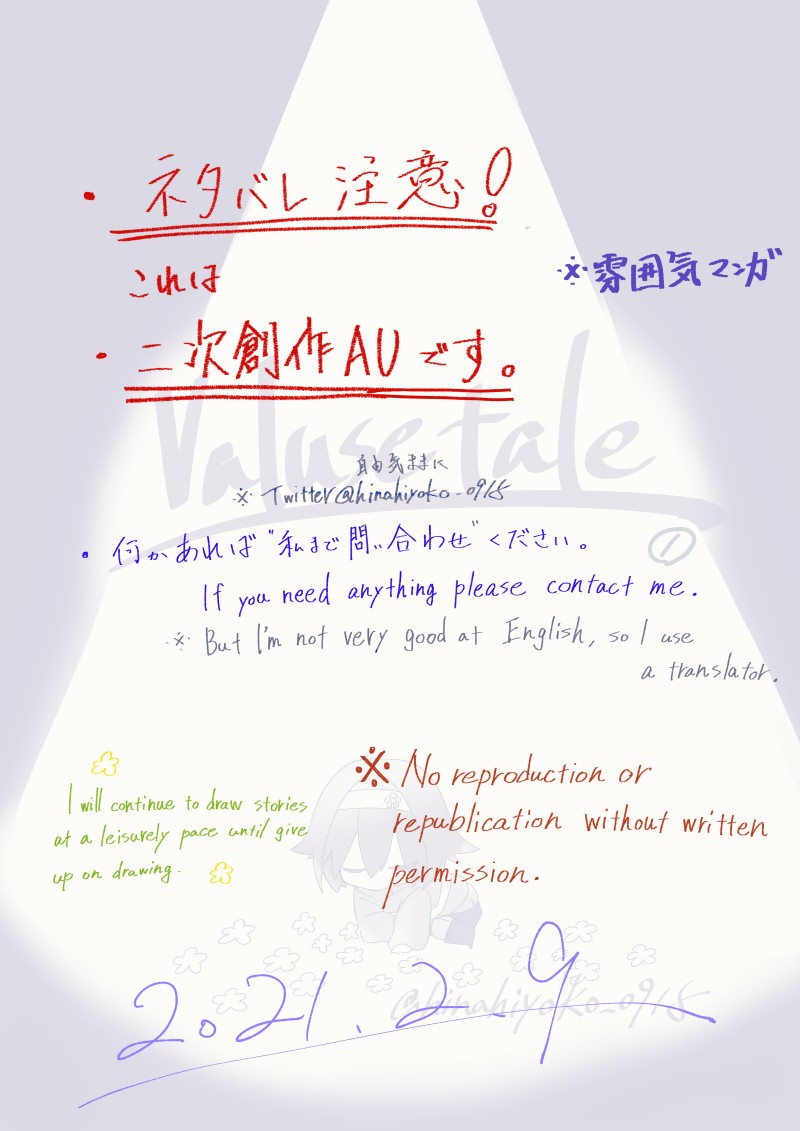 ・ネタバレ注意!
これは
※雰囲気マンガ
・二次創作AUです。
Valuse tale
自由気ままに
※Twitter@hinahiyoko_0915
・何かあれば"私まで問い合わせ"ください。
①
If you need anything please contact me.
※But I'm not very good at English, so I use
a translator.
I will continue to draw stories
at a leisurely pace until give
up on drawing.
※No reproduction or
republication without written
permission.
2021.2.9
@hinahiyoko_0915